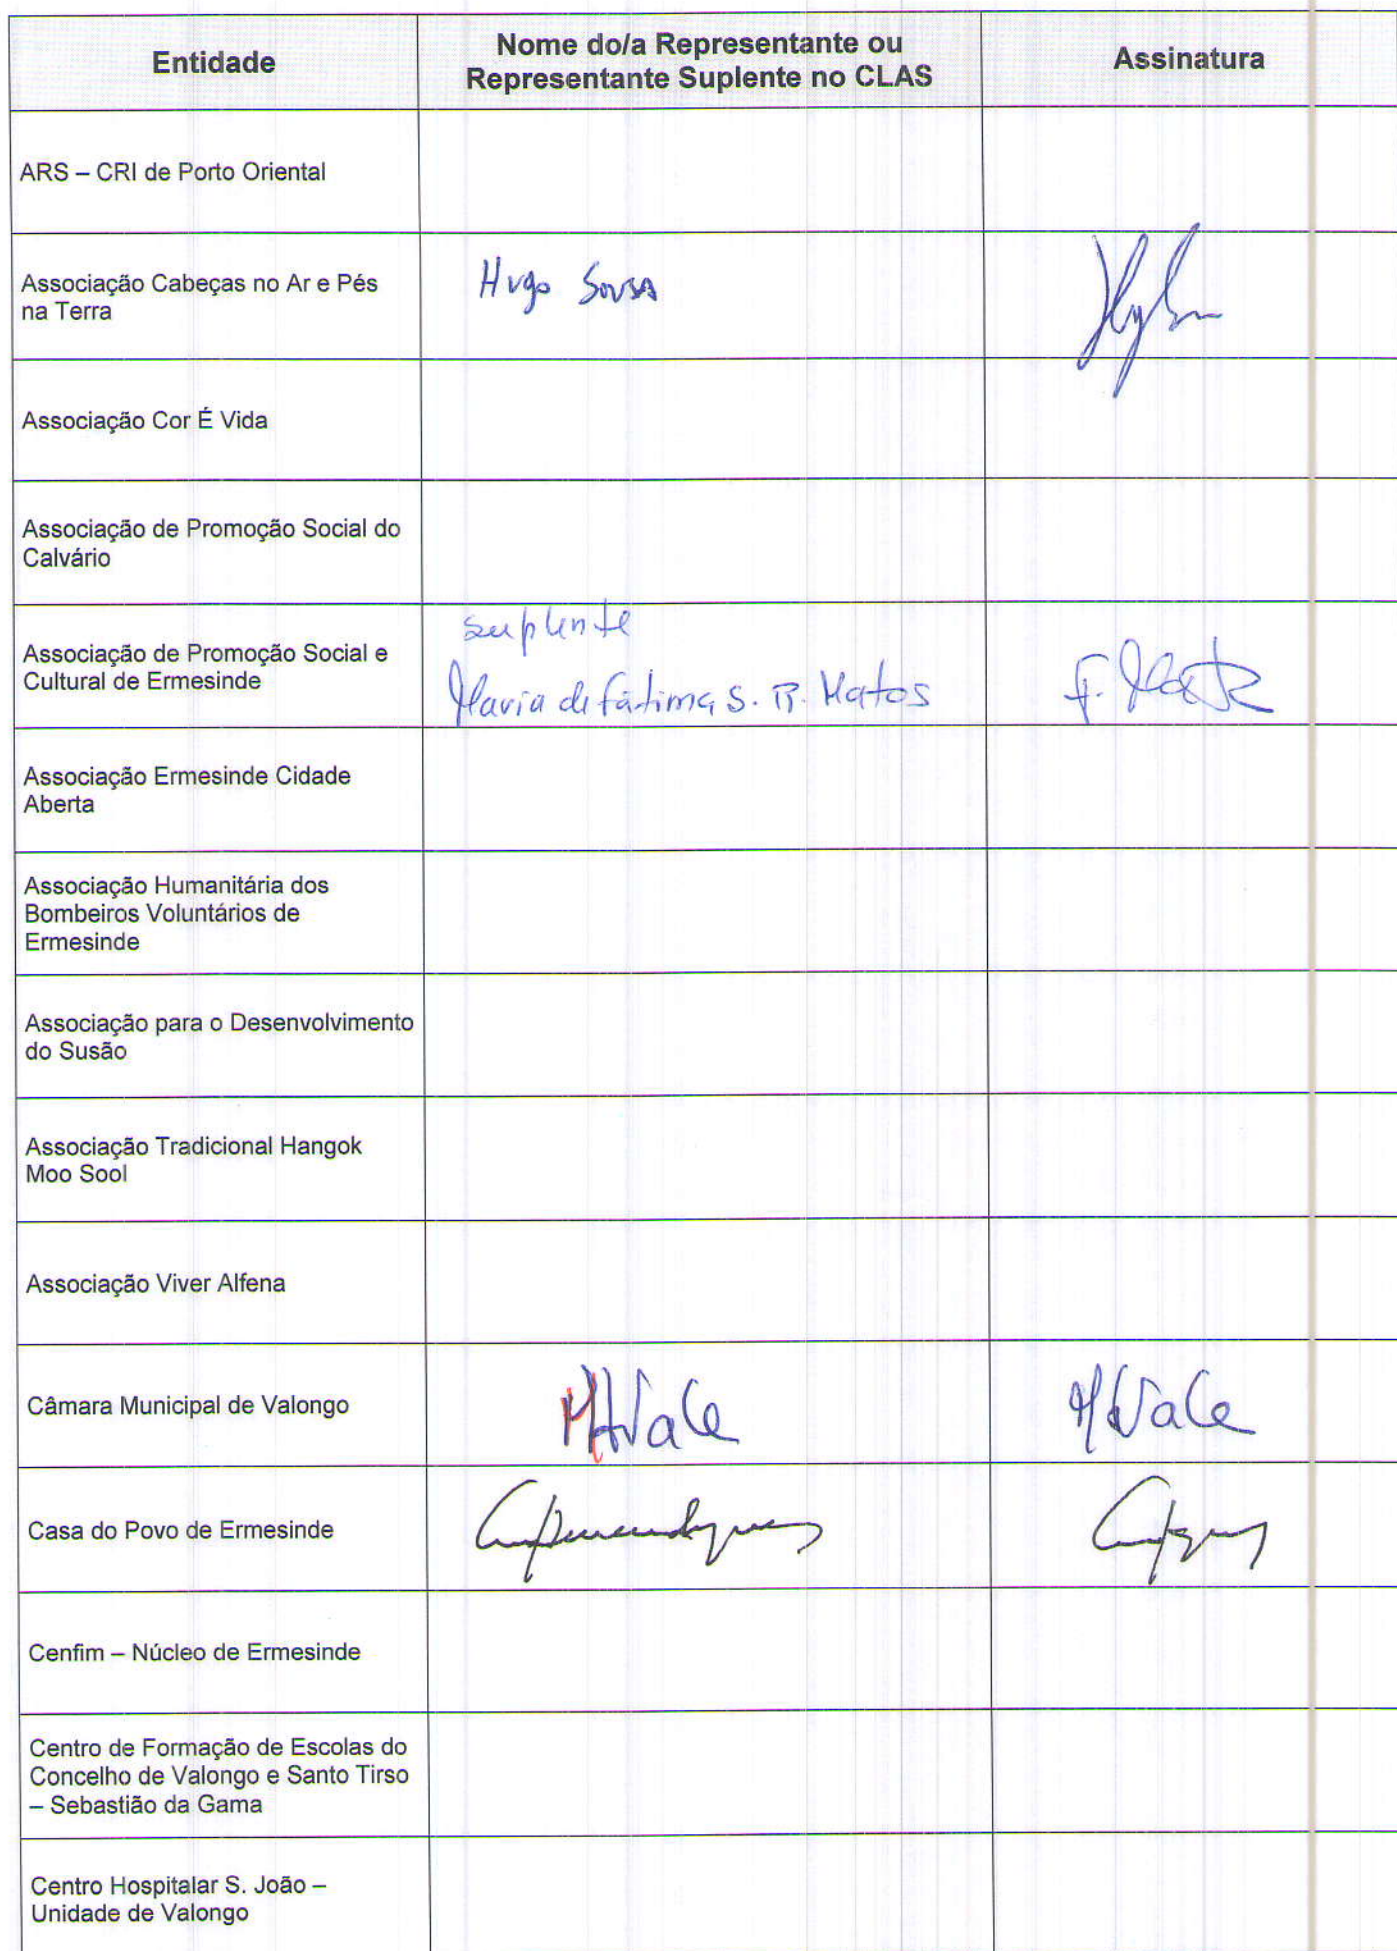 Entidade
Nome do/a Representante ou
Representante Suplente no CLAS
Assinatura
ARS – CRI de Porto Oriental
Associação Cabeças no Ar e Pés
na Terra
Hugo Sousa
Associação Cor É Vida
Associação de Promoção Social do
Calvário
Associação de Promoção Social e
Cultural de Ermesinde
suplente
Maria de Fátima S. R. Matos
F. Matos
Associação Ermesinde Cidade
Aberta
Associação Humanitária dos
Bombeiros Voluntários de
Ermesinde
Associação para o Desenvolvimento
do Susão
Associação Tradicional Hangok
Moo Sool
Associação Viver Alfena
Câmara Municipal de Valongo
Casa do Povo de Ermesinde
Cenfim – Núcleo de Ermesinde
Centro de Formação de Escolas do
Concelho de Valongo e Santo Tirso
– Sebastião da Gama
Centro Hospitalar S. João –
Unidade de Valongo